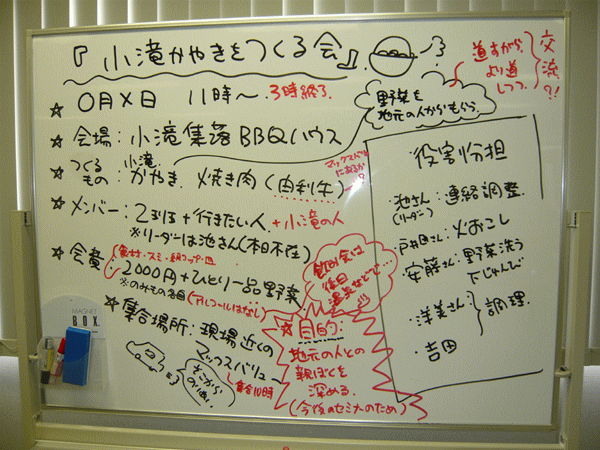 『小滝かやきをつくる会』
☆ 〇月×日 11時〜 3時終了
☆ 会場：小滝集落BBQハウス
☆ つくるもの：小滝かやき. 焼き肉(由利牛)
マックスバリュにあるか?
☆ メンバー：2るは＋行きたい人 ＋小滝の人
※リーダーは池さん(本日不在)
☆ 会費：2000円＋ひとり一品野菜
食材・スミ・紙コップ・皿
※のみもの各自(アルコールはなし)
☆ 集合場所：現場近くのマックスバリュー
集合10時
☆ 目的：
地元の人との
親ぼくを
深める.
(今後のセミナーのため)
飲み会は
後日
温泉などで…
野菜を
地元の人からもらう.
道すがら.
より道
しつつ.
交流?!
役割分担
・池さん：連絡調整.
(リーダー)
・戸井田さん：火おこし
・安藤さん：野菜洗う
下じゅんび
・洋美さん
・吉田
調理.
MAGNET
BOX